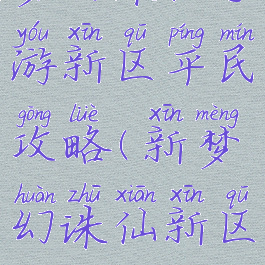 yóu xīn qū píng mín
游新区平民
gōng lüè xīn mèng
攻略(新梦
huàn zhū xiān xīn qū
幻诛仙新区